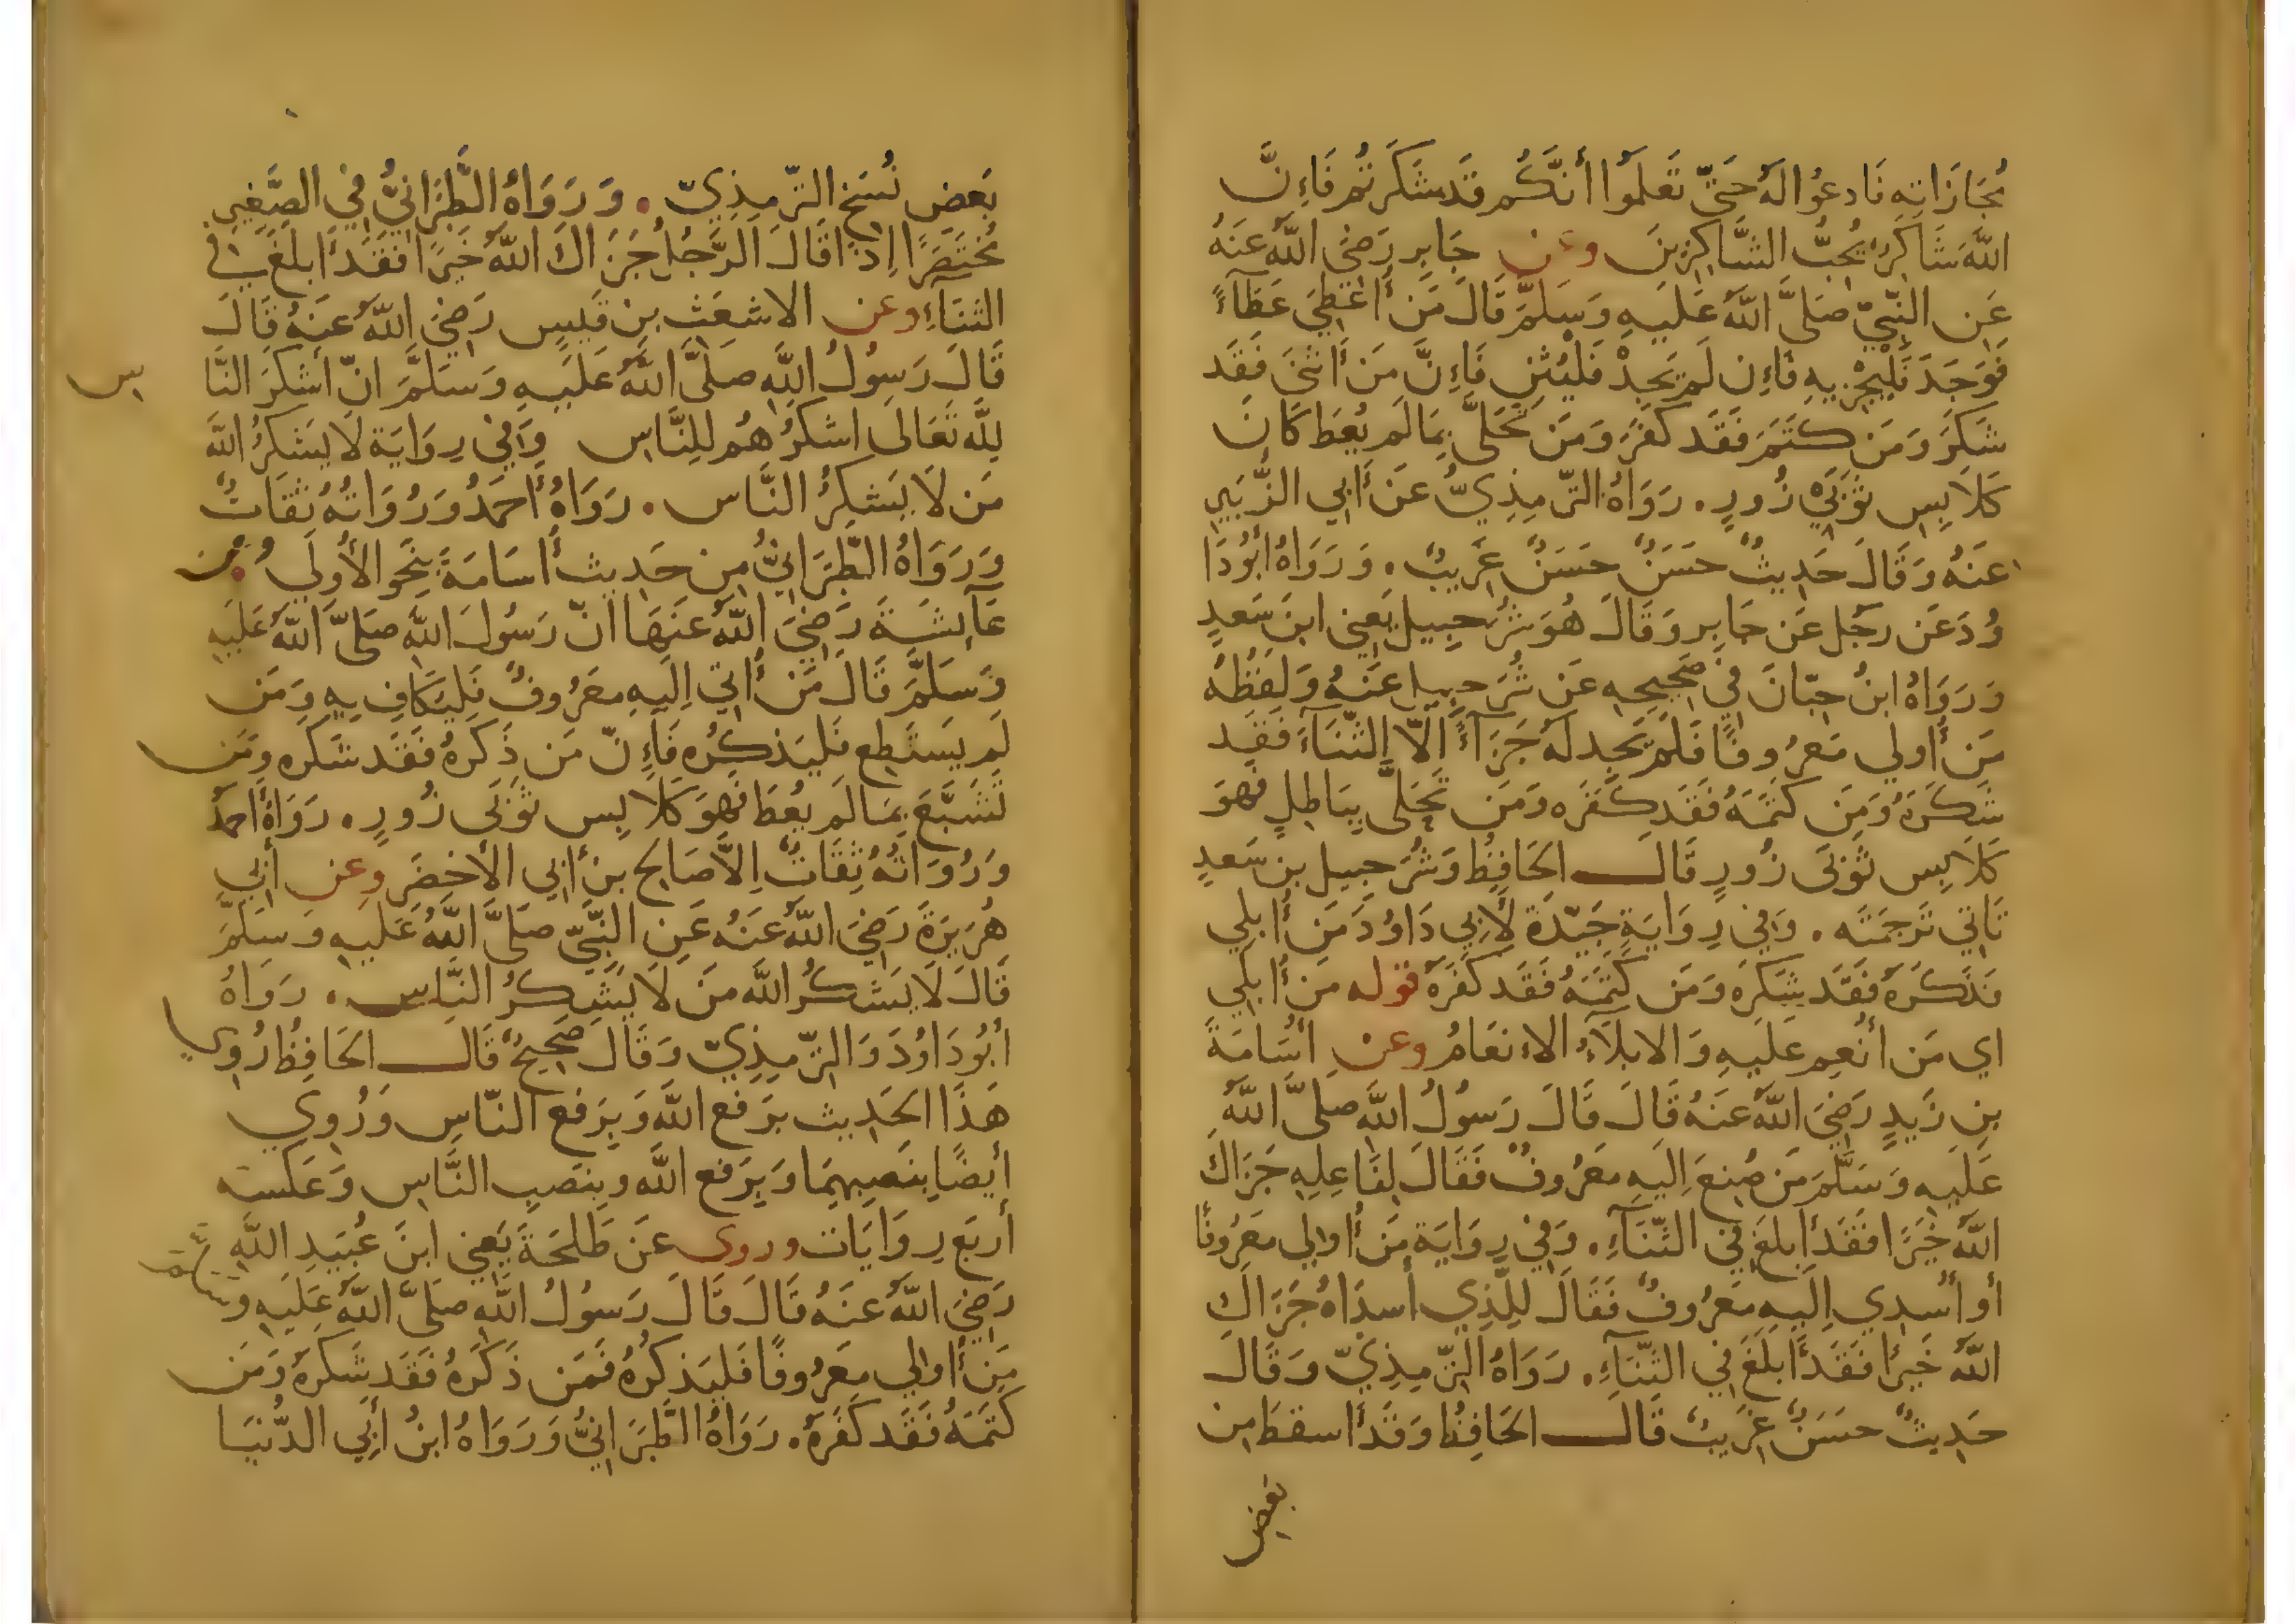 مُجَازَاتِهِ فَادعُوا لَهُ حَتّى تَعلَمُوا أنَّكُم قَد شَكَرتُم فَاِنَّ
اللّهَ شَاكِرٌ يُحِبُّ الشَّاكِرِينَ وعن جَابِر رَضِيَ اللّهُ عَنهُ
عَنِ النَّبِيّ صَلَّى اللّهُ عَلَيهِ وَسَلَّمَ قَالَ مَن أُعطِيَ عَطَآءً
فَوَجَدَ فَليَجْزِ بِهِ فَاِن لَم يَجِدْ فَليُثنِ فَاِنَّ مَن أَثنَى فَقَد
شَكَرَ وَمَن كَتَمَ فَقَد كَفَرَ وَمَن تَحَلَّى بِمَا لَم يُعطَ كَانَ
كَلَابِسِ ثَوبَي زُورٍ . رَوَاهُ التّرمِذِيُّ عَن أَبِي الزُّبَيرِ
عَنهُ وَقَالَ حَدِيثٌ حَسَنٌ حَسَنٌ غَرِيبٌ . وَرَوَاهُ أبُو دَا
وُدَ عَن رَجُل عَن جَابِر وَقَالَ هُوَ شُرَحبِيل يَعنِي ابنَ سَعدٍ
وَرَوَاهُ ابنُ حِبّانَ فِي صَحِيحِهِ عَن شُرَحبِيل عَنهُ وَلَفظُهُ
مَن أُولِي مَعرُوفًا فَلَم يَجِد لَهُ جَزَآءً اِلّا الثَّنَآءَ فَقَد
شَكَرَهُ وَمَن كَتَمَهُ فَقَد كَفَرَه وَمَن تَحَلَّى بِبَاطِلٍ فَهوَ
كَلَابِسِ ثَوبَي زُورٍ قَالَ الحَافِظُ وَشُرَحبِيل بن سَعدٍ
تَاتِي تَرجَمَتَه . وَفِي رِوَايَةٍ جَيّدَة لِأبِي دَاوُدَ مَن أُبلِي
فَذَكَرَهُ فَقَد شَكَرَه وَمَن كَتَمَهُ فَقَد كَفَرَهُ قوله مَن أُبلِي
اي مَن أُنعِم عَلَيهِ وَالابلَآءُ الاِنعَامُ وعن أُسَامَةَ
بنِ زَيدٍ رَضِيَ اللّهُ عَنهُ قَالَ قَالَ رَسُولُ اللّهِ صَلَّى اللّهُ
عَلَيهِ وَسَلَّمَ مَن صُنِعَ اِلَيهِ مَعرُوفٌ فَقَالَ لِفَاعِلِهِ جَزَاكَ
اللّهُ خَيرًا فَقَد أَبلَغَ فِي الثّنَآءِ . وَفِي رِوَايَة مَن أُولِي مَعرُوفًا
أو أُسدِي اِلَيهِ مَعرُوفٌ فَقَالَ لِلَّذِي أسدَاهُ جَزَاكَ
اللّهُ خَيرًا فَقَد أَبلَغَ فِي الثّنَآءِ . رَوَاهُ التّرمِذِيّ وَقَالَ
حَدِيثٌ حَسَنٌ غَرِيبٌ قَالَ الحَافِظُ وَقَد أسقطَ مِن
بعض
بَعضِ نُسَخِ التّرمِذِيّ . وَرَوَاهُ الطَّبَرَانِيُّ فِي الصَّغِيرِ
مُختَصَرًا اِذَا قَالَ الرَّجُلُ جَزَاكَ اللّهُ خَيرًا فَقَد أبلَغَ فِي
الثنَآءِ وعن الاشعَثِ بنِ قَيسٍ رَضِيَ اللّهُ عَنهُ قَالَ
قَالَ رَسُولُ اللّهِ صَلَّى اللّهُ عَلَيهِ وَسَلَّمَ اِنّ أشكَرَ النَّا س
لِلّه تَعَالَى اشكَرُهُم لِلنَّاسِ وَفِي رِوَايَة لَا يَشكُرُ اللّهَ
مَن لَا يَشكُرُ النَّاس . رَوَاهُ أحمَدُ وَرُوَاتُهُ ثِقَاتٌ
وَرَوَاهُ الطّبَرَانِيُّ مِن حَدِيث أُسَامَةَ بِنَحوِ الأُولَى
عَآئِشَةَ رَضِيَ اللّهُ عَنهَا انّ رَسُولَ اللّهِ صَلَّى اللّهُ عَلَيهِ
وَسَلَّمَ قَالَ مَن أُتِي اِلَيهِ مَعرُوفٌ فَليُكَافِ بِهِ وَمَن
لَم يَستَطِع فَليَذكُره فَاِنّ مَن ذَكَرَهُ فَقَد شَكَره وَمَن
تَشَبَّعَ بِمَا لَم يُعطَ فَهوَ كَلَابِس ثَوبَي زُورٍ . رَوَاهُ أحمَدُ
وَرُوَاتُهُ ثِقَاتٌ اِلاَّ صَالِح بن أَبِي الأَخضَرِ وعن أبِي
هُرَيرَةَ رَضِيَ اللّهُ عَنهُ عَنِ النَّبِيّ صَلَّى اللّهُ عَلَيهِ وَسَلَّمَ
قَالَ لَا يَشكُرُ اللّهَ مَن لَا يَشكُرُ النَّاس . رَوَاهُ
أبُو دَاوُدَ وَالتّرمِذِيّ وَقَالَ صَحِيحٌ قَالَ الحَافِظُ رُوِي
هَذَا الحَدِيث بِرَفع اللّهَ وَبِرَفع النَّاسِ وَرُوِي
أيضًا بِنَصبِهِمَا وَبِرَفع اللّه وبِنَصبِ النَّاسِ وَعَكسه
أربَع رِوَايَات وروي عَن طَلحَةَ يَعنِي ابنَ عُبَيدِ اللّهِ
رَضِيَ اللّهُ عَنهُ قَالَ قَالَ رَسُولُ اللّهِ صَلَّى اللّهُ عَلَيهِ وسلم
مَن أُولِي مَعرُوفًا فَليَذكُرهُ فَمَن ذَكَرَهُ فَقَد شَكَرَهُ وَمَن
كَتَمَهُ فَقَد كَفَرَهُ . رَوَاهُ الطَّبَرَانِيُّ وَرَوَاهُ ابنُ أَبِي الدُّنيَا